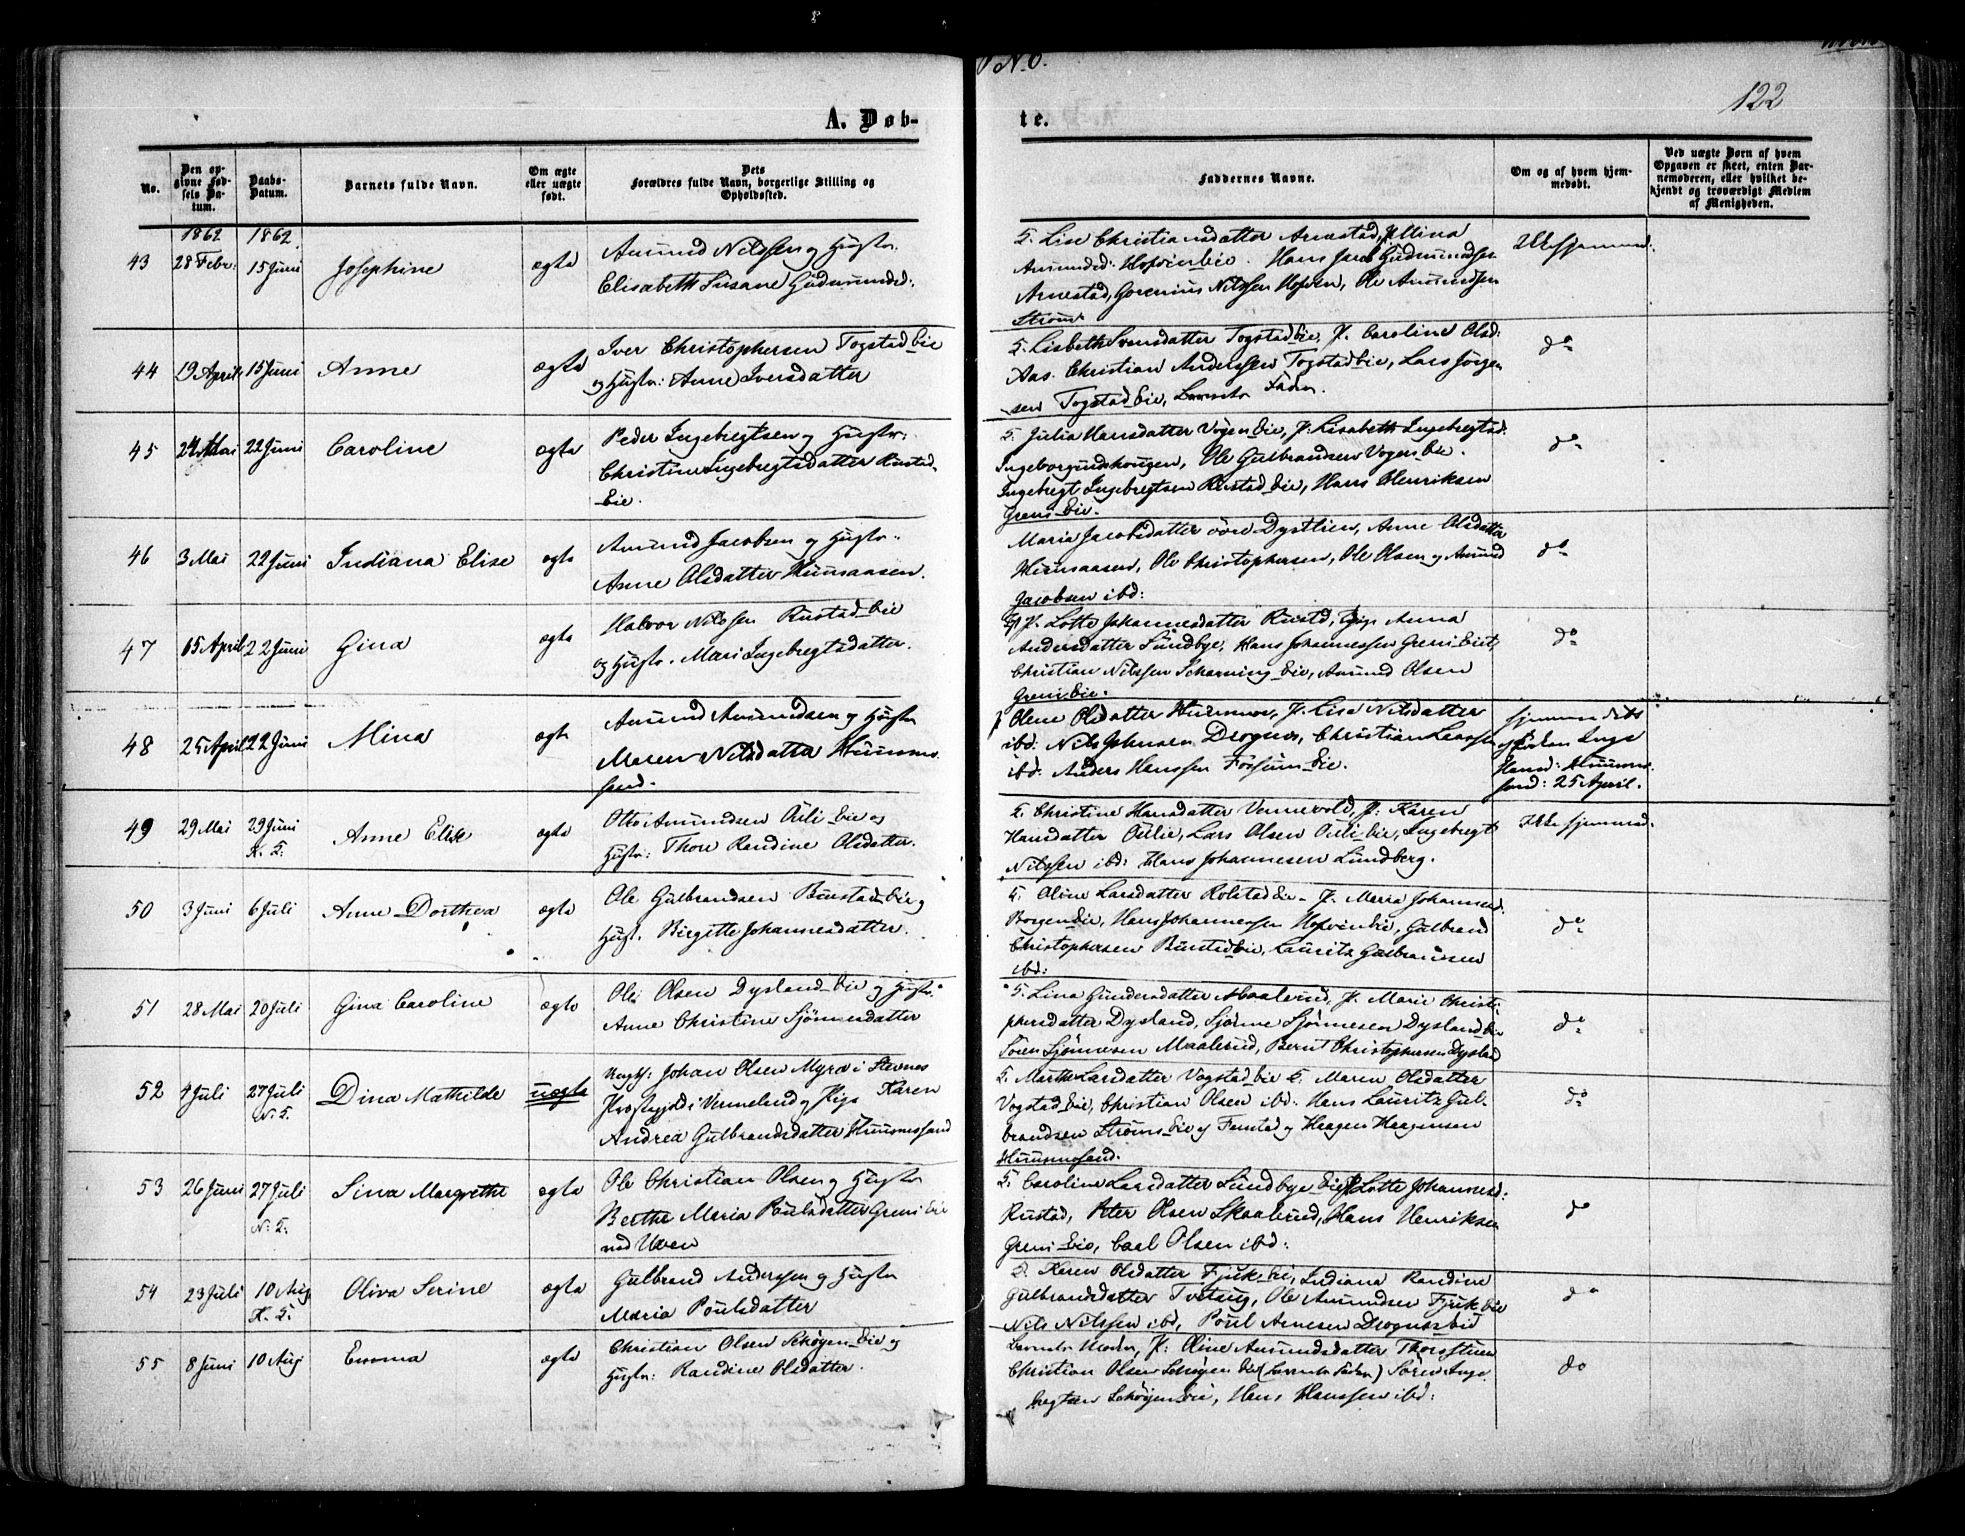 No. 6.
122
A. Døb-
te.
No.
Den op-
givne Fød-
sels Da-
tum.
Daabs-
Datum.
Barnets fulde Navn.
Om ægte
eller uægte
født.
Dets
Forældres fulde Navn, borgerlige Stilling og
Opholdssted.
Faddernes Navne.
Om og af hvem hjem-
medøbt.
Ved uægte Børn af hvem
Opgaven er skeet, enten Bar-
nemoderen, eller hvilket be-
kjendt og troværdigt Medlem
af Menigheden.
1862
1862
43
28 Febr:
15 Juni
Josephine
ægte
Amund Nilssen og Hustr.
Elisabeth Susane Gudmundsd:
G. Lise Christiansdatter Arnestad, P. Mina
Amundsd: Hofvineie. Hans Jacob Gudmundsen
Arnestad, Gorenius Nilssen Hofvin, Ole Amundsen
Strøm
Ikke hjemmed:
44
19 April
15 Juni
Anne
ægte
Iver Christophersen Togstad eie
og Hustr: Anne Iversdatter
G. Lisbeth Svensdatter Togstad eie, P. Caroline Olsd:
Aas. Christian Anderssen Togstad eie, Lars Jørgen
sen Togstad eie, Barnets Fader.
do
45
24 Mai
22 Juni
Caroline
ægte
Peder Ingebregtsen og Hustr:
Christine Ingebregtsdatter Rustad
eie.
G. Julia Hansdatter Vogen eie, P. Lisabeth Ingebregtsd:
Ingeborgrudshougen, Ole Gulbrandsen Vogen eie.
Ingebregt Ingebregtsen Rustad eie, Hans Henriksen
Greni eie.
do
46
3 Mai
22 Juni
Indiana Elise
ægte
Amund Jacobsen og Hustr.
Anne Olsdatter Huusaasen.
Maria Jacobsdatter øvre Dystlien, Anne Olsdatter
Huusaasen, Ole Christophersen, Ole Olsen og Amund
Jacobsen ibd:
do
47
15 April
22 Juni
Gina
ægte
Halvor Nilssen Rustad eie
og Hustr. Mari Ingebregtsdatter.
P. Lotte Johannesdatter Rustd, Pige Anna
Andersdatter Sundbye, Hans Johannessen Greni Eiet,
Christian Nilssen Scharning eie, Amund Olsen
Greni eie.
do
48
25 April
22 Juni
Mina
ægte
Amund Amundsen og Hustr
Maren Nilsdatter Huusmo
sand.
Olene Olsdatter Huusmo, P. Lise Nilsdatter
ibd: Nils Johnsen Drognes, Christian Larssen
ibd: Anders Hanssen Fossum eie.
hjemmedøbt
af Inge
Hansd: Huusmo
sand: 25 April.
49
29 Mai
29 Juni
K. T.
Anne Elise
ægte
Otto Amundsen Oulie eie og
Hustr: Thore Randine Olsdatter.
G. Christine Hansdatter Vennevold, P. Karen
Hansdatter Oulie, Lars Olsen Ouli eie, Ingebregt
Nilssen ibd: Hans Johannesen Lundberg.
Ikke hjemmed:
50
3 Juni
6 Juli
Anne Dorthea
ægte
Ole Gulbrandsen Bunstad eie og
Hust. Birgitte Johannesdatter.
G. Oline Larsdatter Rolstad eie. P. Maria Johannesd:
Borgen eie, Hans Johannessen Hofvin eie, Gulbrand
Christophersen Bunstad eie, Lauritz Gulbrandsen
ibd:
do
51
28 Mai
20 Juli
Gina Caroline
ægte
Ole Olsen Dysland eie og Hustr.
Anne Christine Sjønnesdatter
G. Lina Gundersdatter Maalerud, P. Marie Christo
phersdatter Dysland, Sjønne Sjønnesen Dysland eie
Søren Sjønnesen Maalerud, Bernt Christophersen Dysland
do
52
4 Juli
27 Juli
N. T.
Dina Mathilde
uægte
Ungkf: Johan Olsen Myra i Stavnes
Prostegjeld i Vermeland og Pige Karen
Andrea Gulbrandsdatter Huusmosand
G. Marthe Larsdatter Vogstad eie G. Maren Olsdatter
Vogstad eie, Christian Olsen ibd: Hans Lauritz Gul-
brandsen Strøms eie af Fenstad og Haagen Haagensen
Huusmosand.
do
53
26 Juni
27 Juli
N. T.
Sina Margrethe
ægte
Ole Christian Olsen og Hustr
Berthe Maria Poulsdatter Greni eie
ved Uven
G. Caroline Larsdatter Sundbye eie, P. Lotte Johannesd:
Rustad, Peter Olsen Skaalerud, Hans Henriksen
Greni eie, Carl Olsen ibd:
do
54
23 Juli
10 Aug
K. T.
Oliva Serine
ægte
Gulbrand Anderssen og Hustr
Maria Poulsdatter
G. Karen Olsdatter Fjuk eie, Indiana Randine
Gulbrandsdatter Tveterg, Ole Amundsen Fjuk eie
Nils Nilssen ibd, Poul Arnesen Drognæs eie
do
55
8 Juni
10 Aug
Emma
ægte
Christian Olsen Schøyen eie og
Hustr: Randine Olsdatter.
Barnets Moder, P. Oline Amundsdatter Thorsstuen
Christian Olsen Schøyen eie (Barnets Fader) Søren Inge
bregtsen Schøyen eie, Hans Hanssen ibd:
do